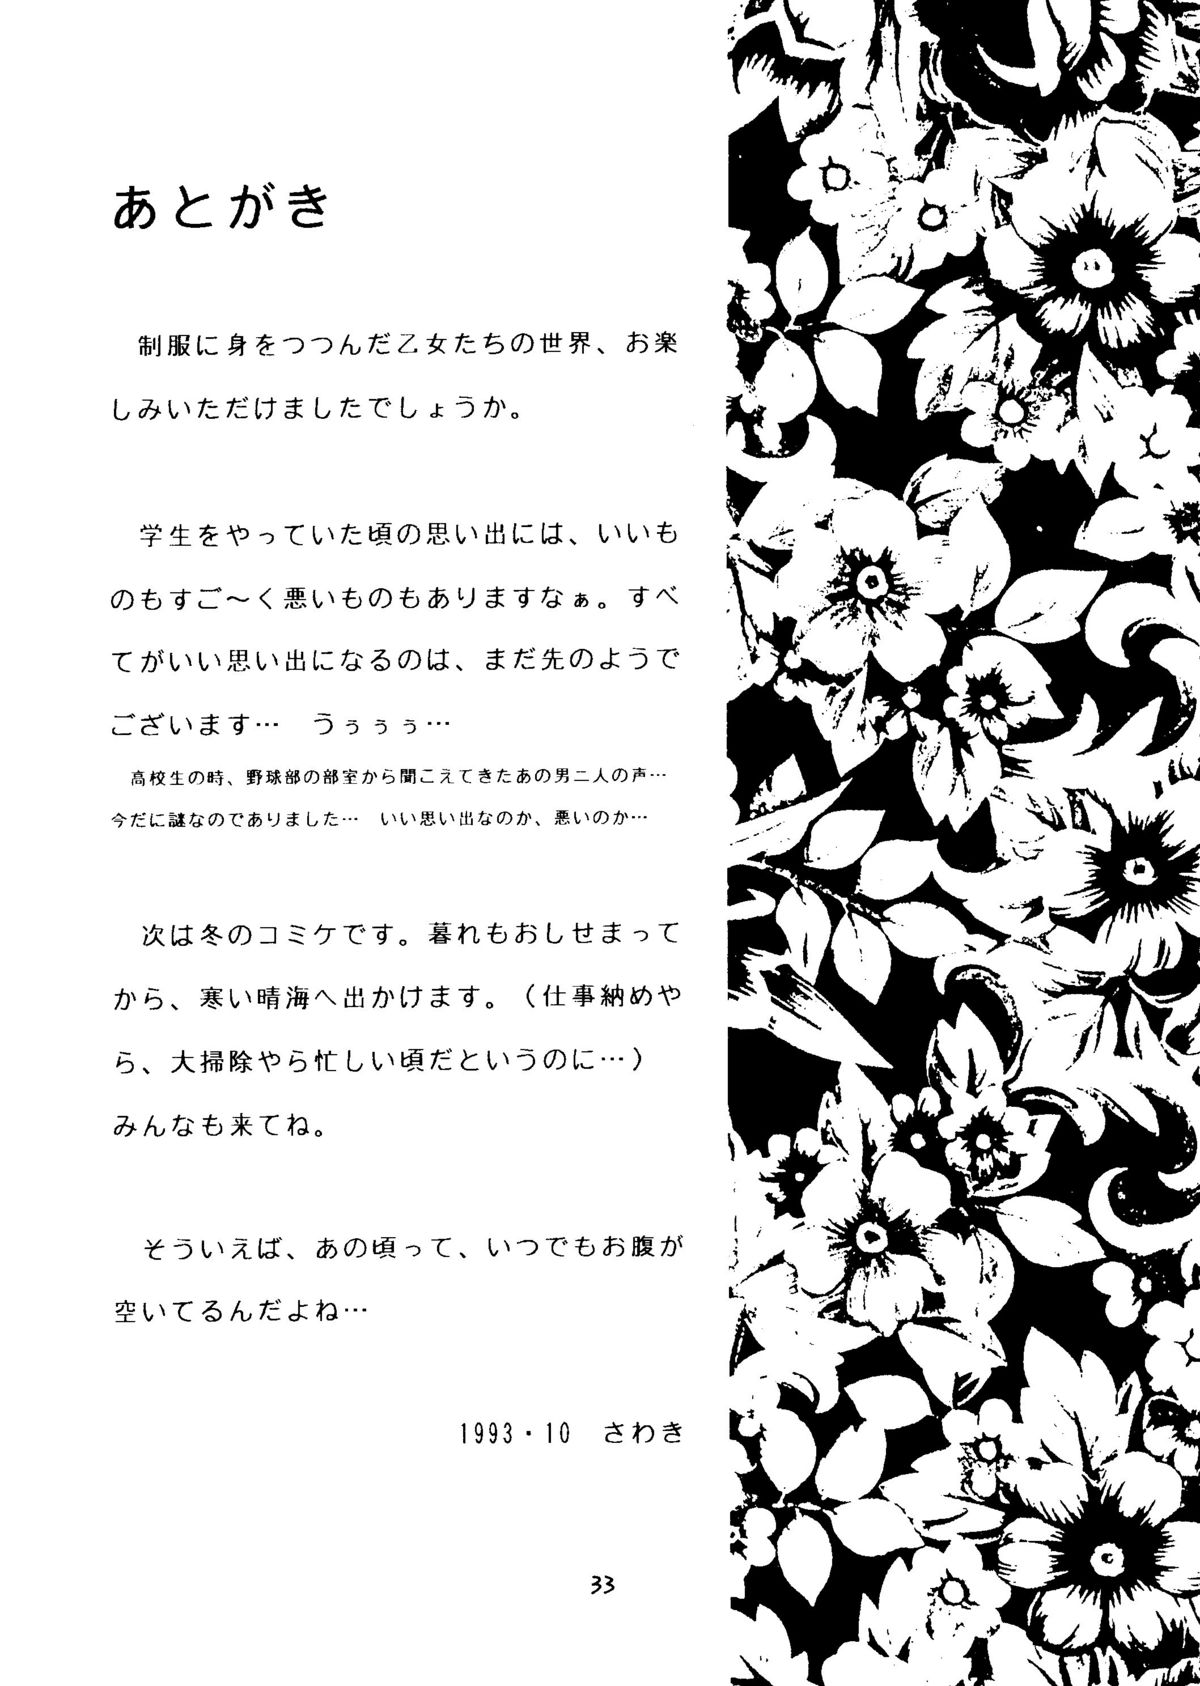 あとがき
制服に身をつつんだ乙女たちの世界、お楽
しみいただけましたでしょうか。
学生をやっていた頃の思い出には、いいも
のもすご～く悪いものもありますなぁ。すべ
てがいい思い出になるのは、まだ先のようで
ございます…　うぅぅぅ…
高校生の時、野球部の部室から聞こえてきたあの男二人の声…
今だに謎なのでありました…　いい思い出なのか、悪いのか…
次は冬のコミケです。暮れもおしせまって
から、寒い晴海へ出かけます。（仕事納めや
ら、大掃除やら忙しい頃だというのに…）
みんなも来てね。
そういえば、あの頃って、いつでもお腹が
空いてるんだよね…
1993・10　さわき
33